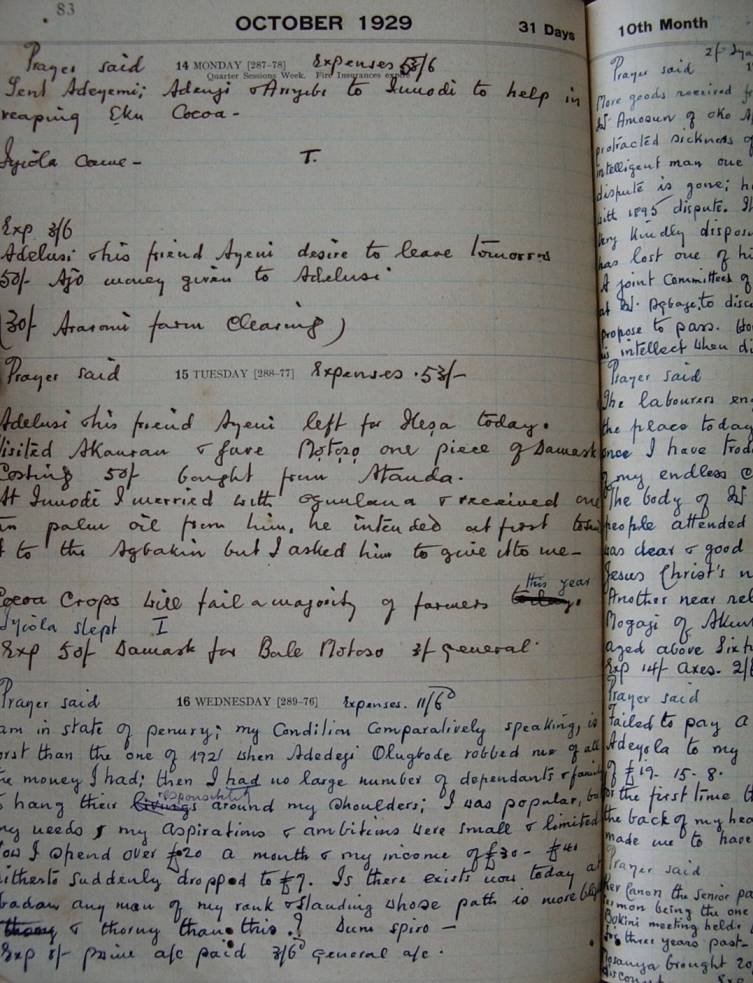 83
OCTOBER 1929 31 Days
Prayer said 14 MONDAY [287-78] Expenses 53/6
Quarter Sessions Week. Fire Insurances
Sent Adeyemi; Adeniji & to Imodi to help in
reaping Eku Cocoa -
Iyiola Came - T.
Exp 3/6
Adelusi & his friend Ayeni desire to leave tomorrow
50/- Ajo money given to Adelusi
(30/- Arasomi farm Clearing)
Prayer said 15 TUESDAY [288-77] Expenses . 53/-
Adelusi & his friend Ayeni left for Ilesa today.
Visited Akanran & gave Motoso one piece of Damask
Costing 50/- bought from Atanda.
At Imodi I with Ogunlana & received one
palm oil from him, he intended at first to
to the Agbakin but I asked him to give it to me -
this year
Cocoa Crops will fail a majority of farmers today.
Iyiola slept I
Exp 50/- Damask for Bale Motoso 3/- general
Prayer said 16 WEDNESDAY [289-76] Expenses. 11/6d
am in state of penury; my Condition Comparatively speaking, is
worst than the one of 1921 when Adedeji Olugbode robbed me of all
the money I had; then I had no large number of dependants &
responsibility
hang their livings around my shoulders; I was popular, but
my needs, my aspirations & ambitions were small & limited
Now I spend over £20 a month & my income of £30 - £40
hitherto suddenly dropped to £7. Is there exists now today at
Ibadan any man of my rank & standing whose path is more
thorny & thorny than this? Dum spiro -
Exp 8/- a/c paid 3/6d general a/c.
10th Month
Prayer said
More goods received
W. Amosun of Oko
protracted sickness of
intelligent man one
dispute is gone; he
with 1895 dispute.
very kindly
has lost one of
A joint Committee of
at W. Agbaje to
propose to pass.
his intellect when
Prayer said
The labourers
the place today
once I have
of my endless
The body of W
people attended
was clear & good
Jesus Christ's
Another near
Mogaji of
aged above Sixty
Exp 14/- Axes. 2/
Prayer said
Failed to pay a
Adeyola to my
of £19-15-8.
for the first time
the back of my
made me to have
Prayer said
Canon the senior
sermon being the one
meeting held
three years past -
brought